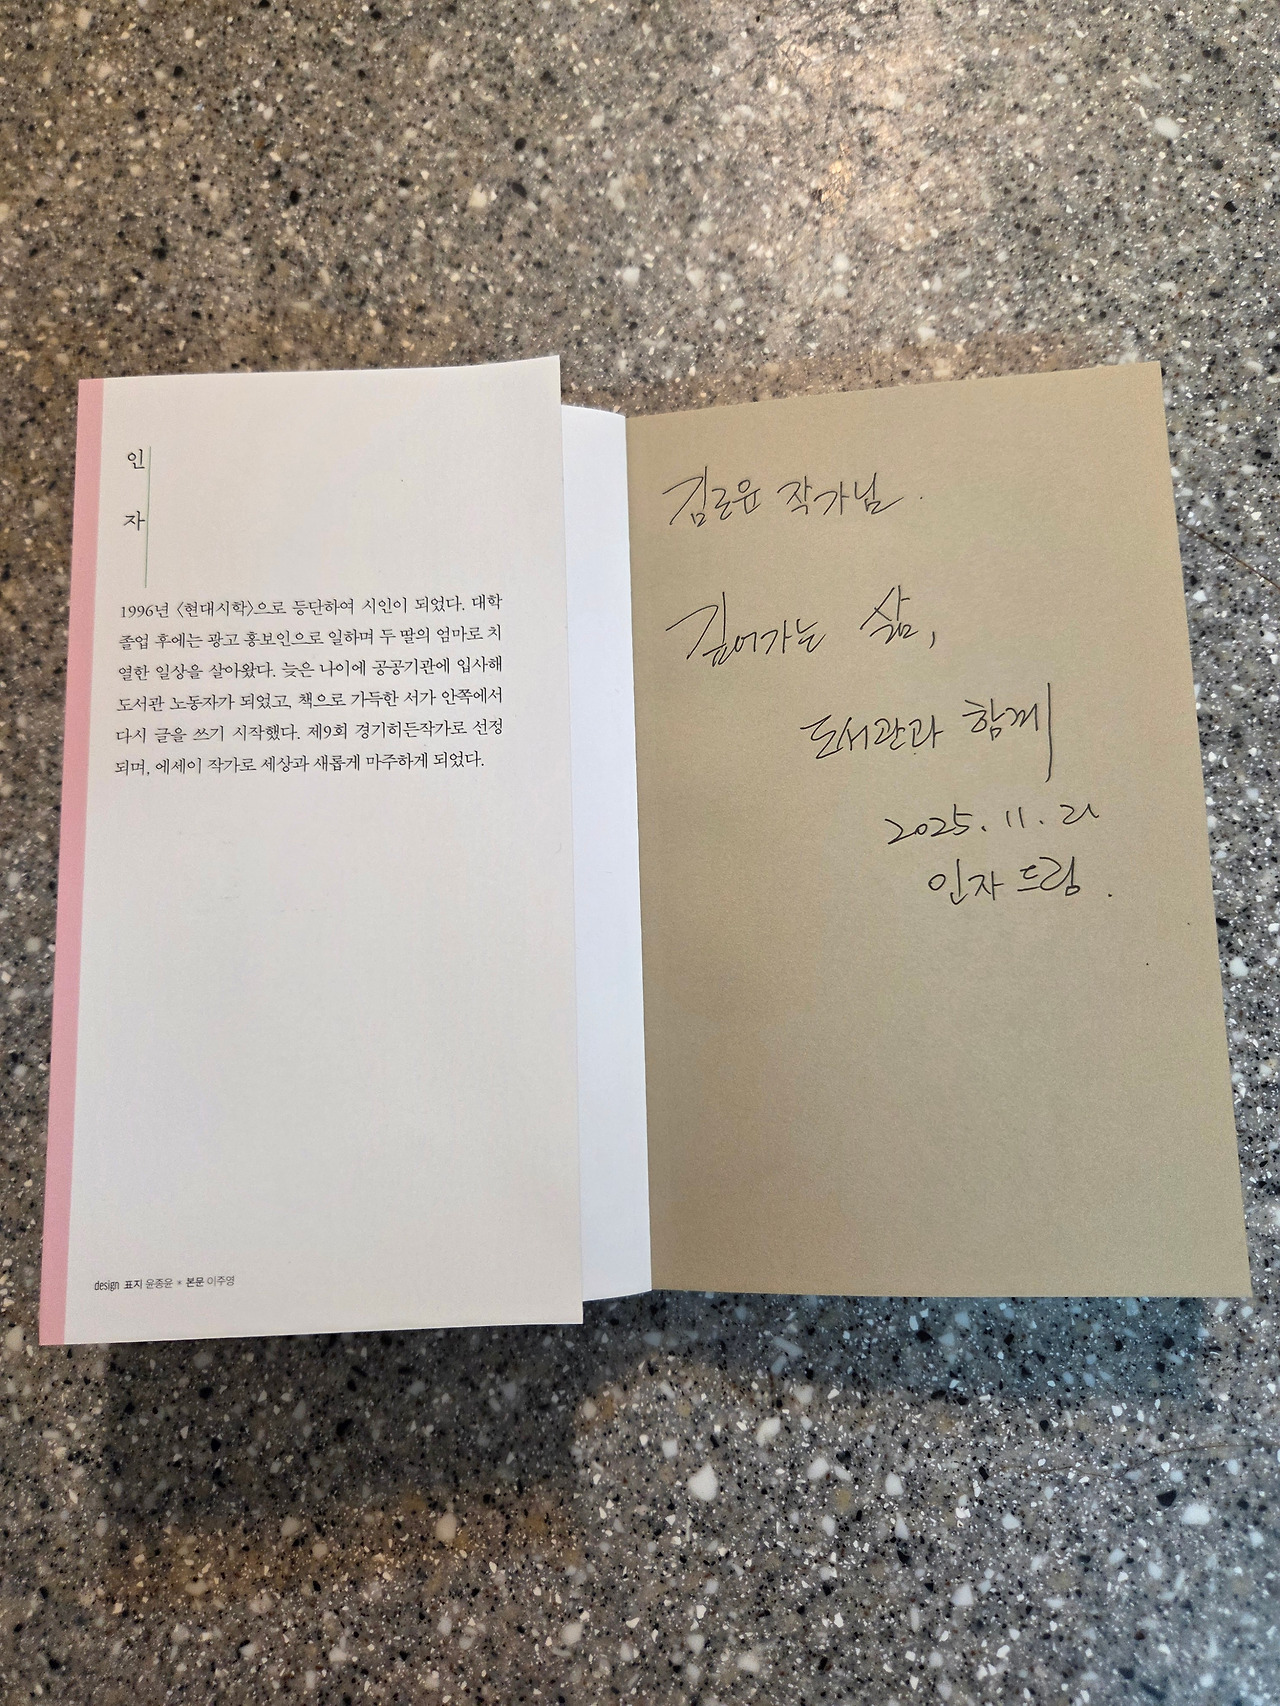 인
자
1996년 〈현대시학〉으로 등단하여 시인이 되었다. 대학
졸업 후에는 광고 홍보인으로 일하며 두 딸의 엄마로 치
열한 일상을 살아왔다. 늦은 나이에 공공기관에 입사해
도서관 노동자가 되었고, 책으로 가득한 서가 안쪽에서
다시 글을 쓰기 시작했다. 제9회 경기히든작가로 선정
되며, 에세이 작가로 세상과 새롭게 마주하게 되었다.
design 표지 윤종윤 * 본문 이주영
작가님.
깊어가는 삶,
도서관과 함께
2025. 11.
인자 드림.